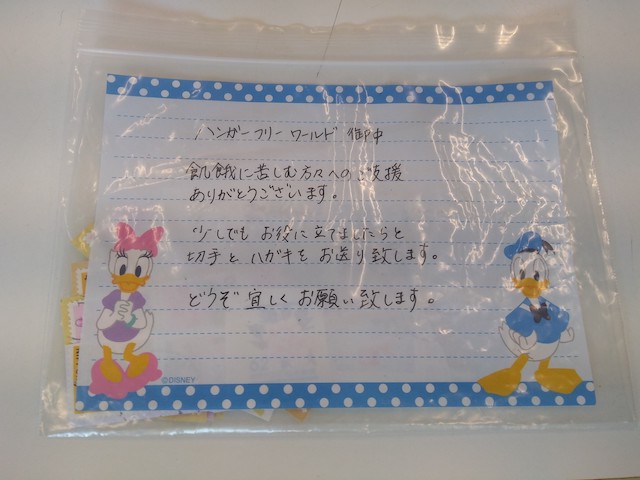 ハンガーフリーワールド 御中
飢餓に苦しむ方々へのご支援
ありがとうございます。
少しでも お役に立てましたらと
切手と ハガキを お送り致します。
どうぞ 宜しく お願い致します。
©DISNEY